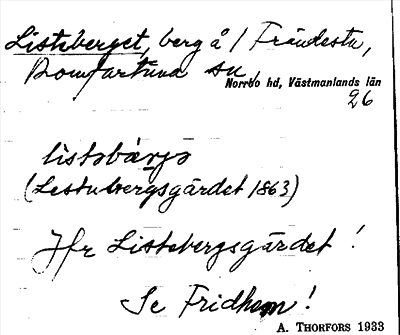 Listsberget, berg å / Frändesta,
Romfartuna sn,
Norrbo hd, Västmanlands län
26
listsbærjə
(Lestubergsgärdet 1863)
Jfr Listsbergsgärdet!
Se Fridhem!
A. THORFORS 1933